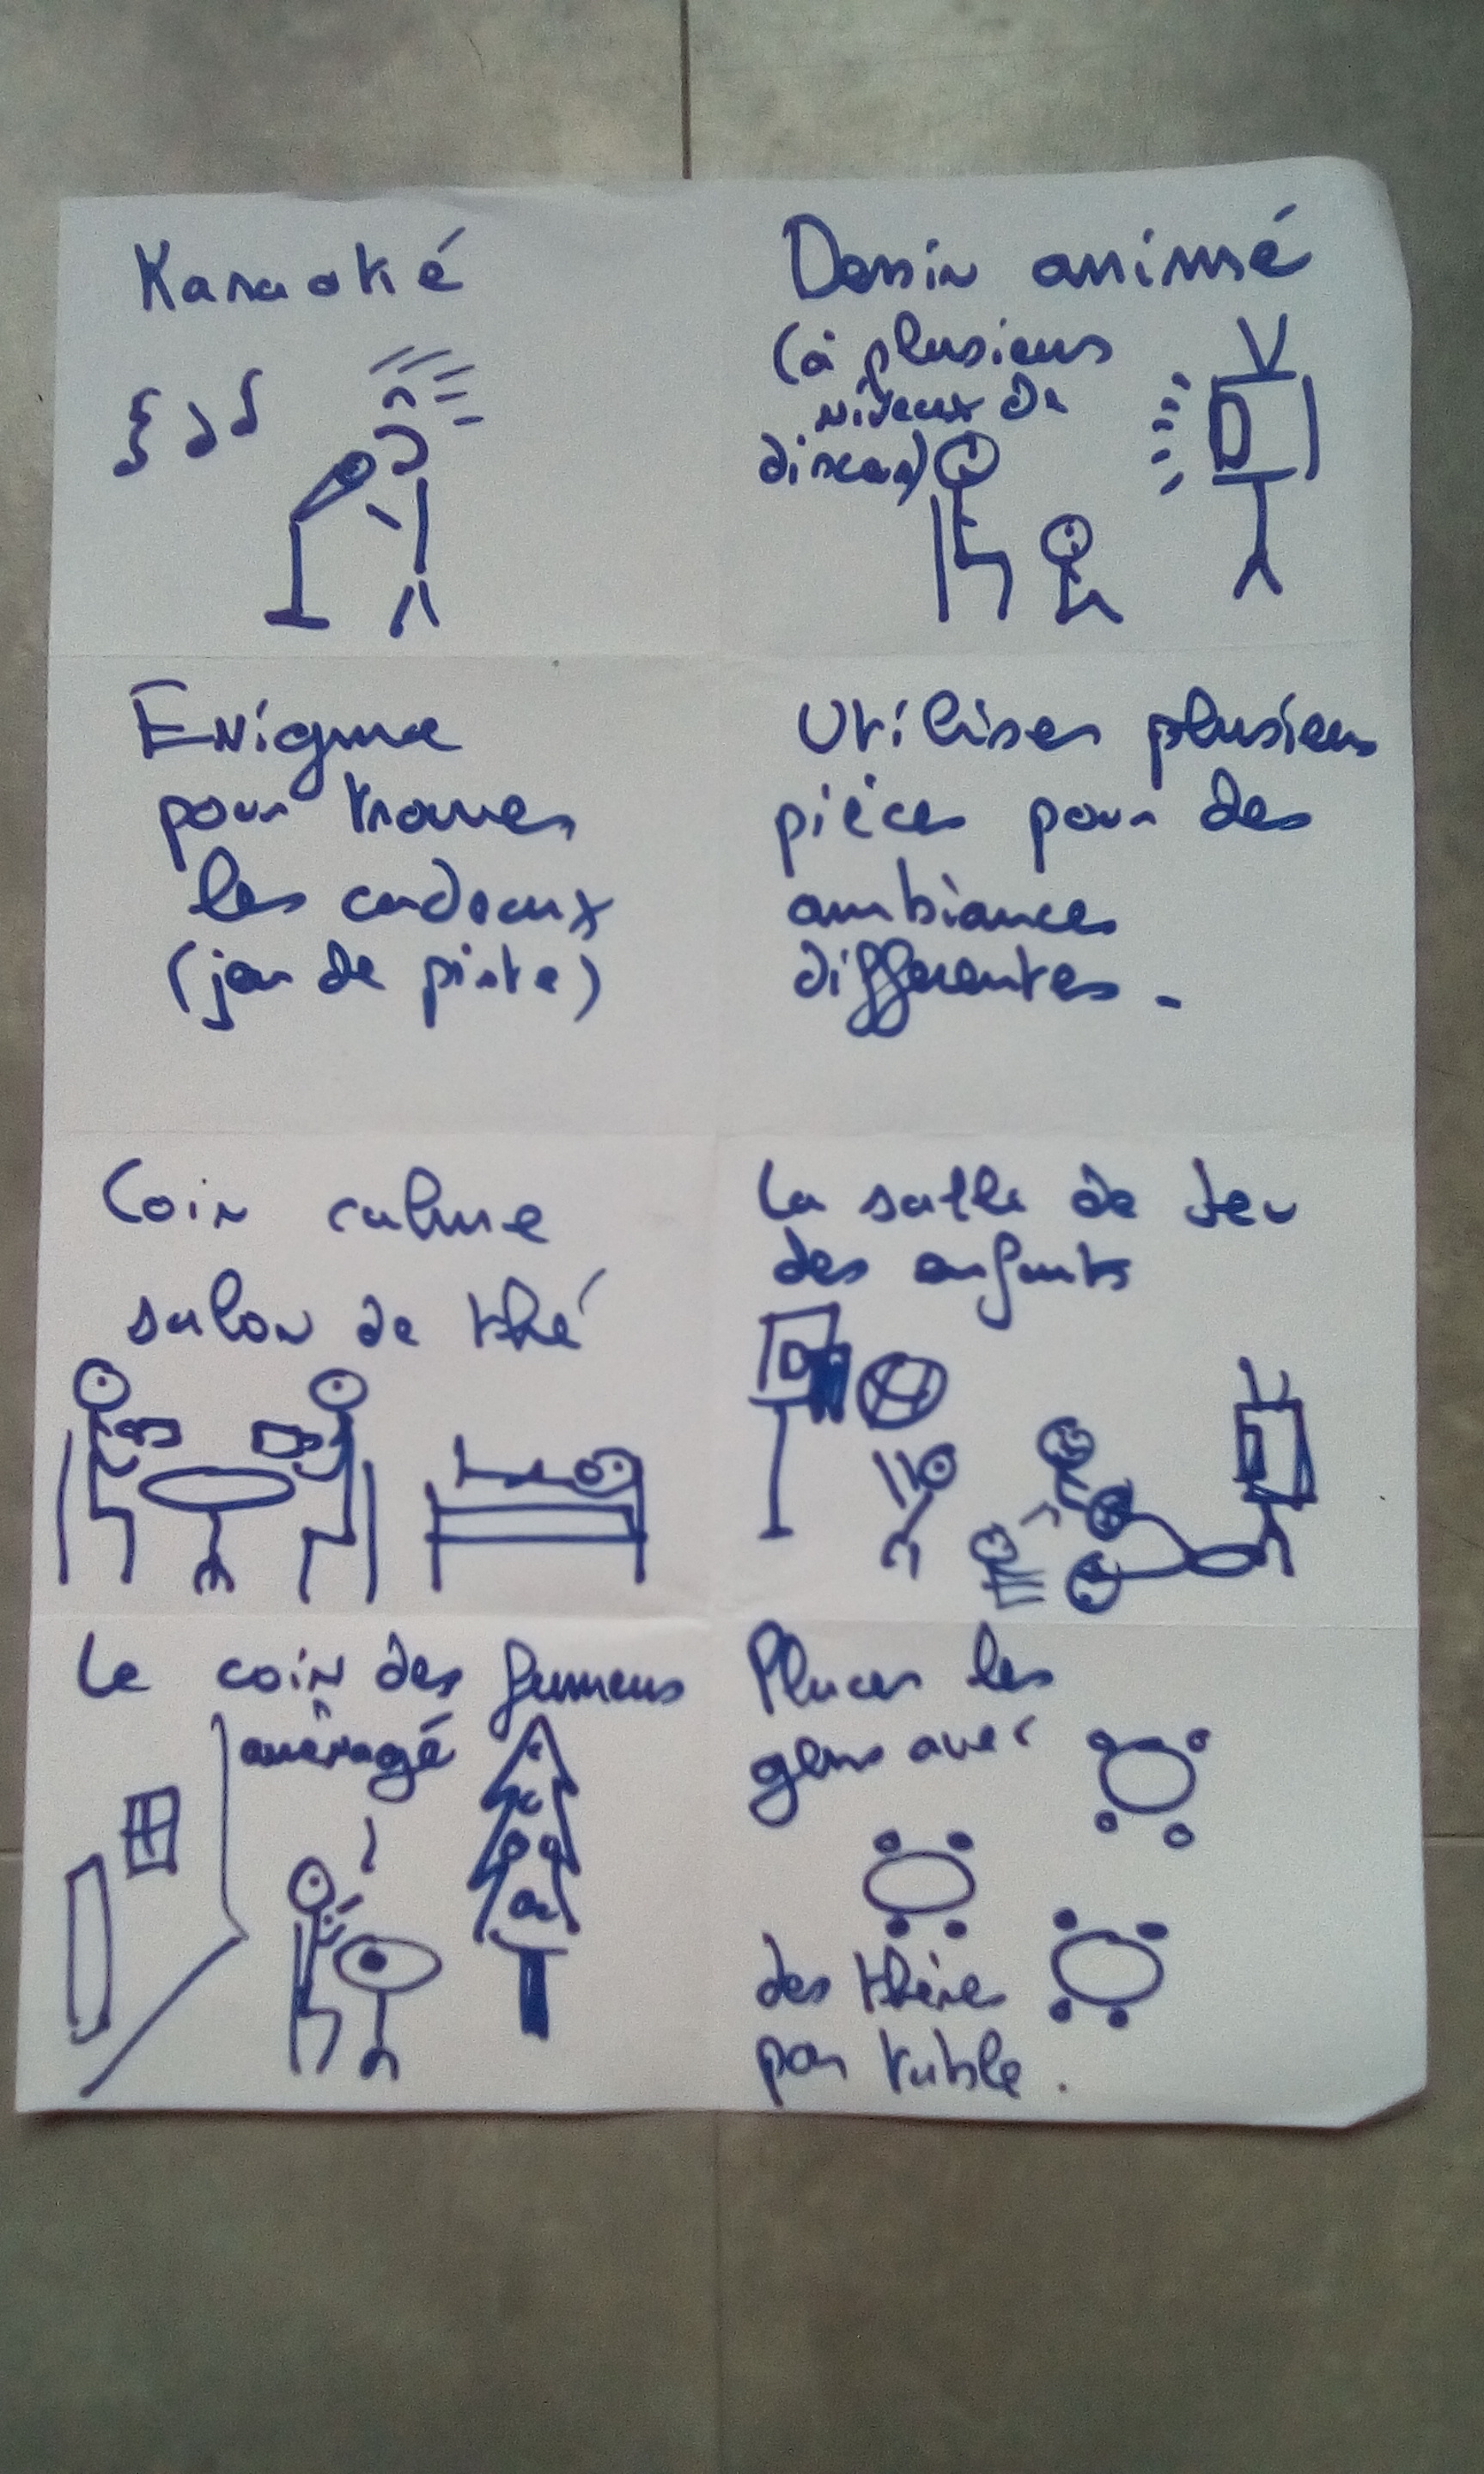 Karaoké
Dessin animé
(à plusieurs
niveaux de
discours)
Enigme
pour trouver
les cadeaux
(jeu de piste)
Utiliser plusieurs
pièces pour des
ambiances
différentes.
Coin calme
salon de thé
La salle de Jeu
des enfants
Le coin des fumeurs
aménagé
Placer les
gens avec
des thèmes
par table.